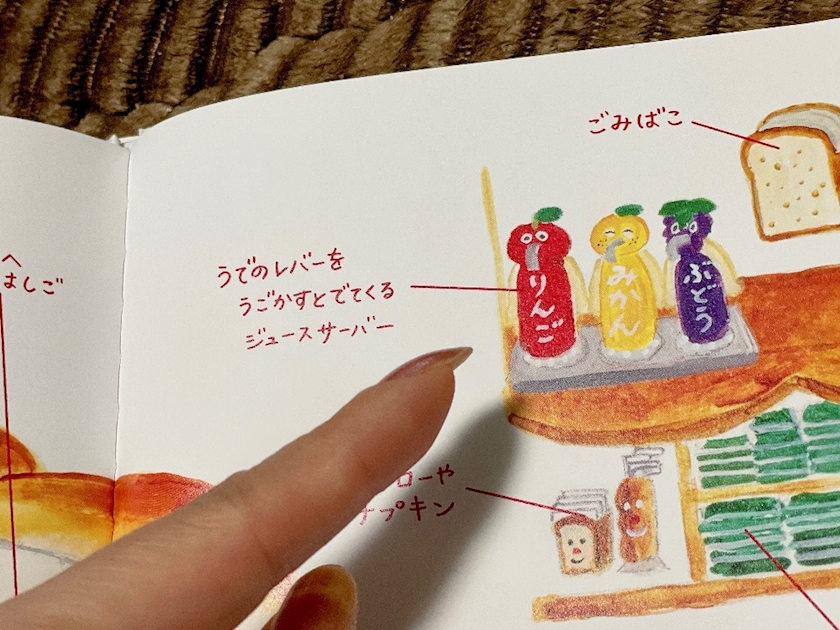 へ
はしご
ごみばこ
うでのレバーを
うごかすとでてくる
ジュースサーバー
りんご
みかん
ぶどう
ローや
ナプキン